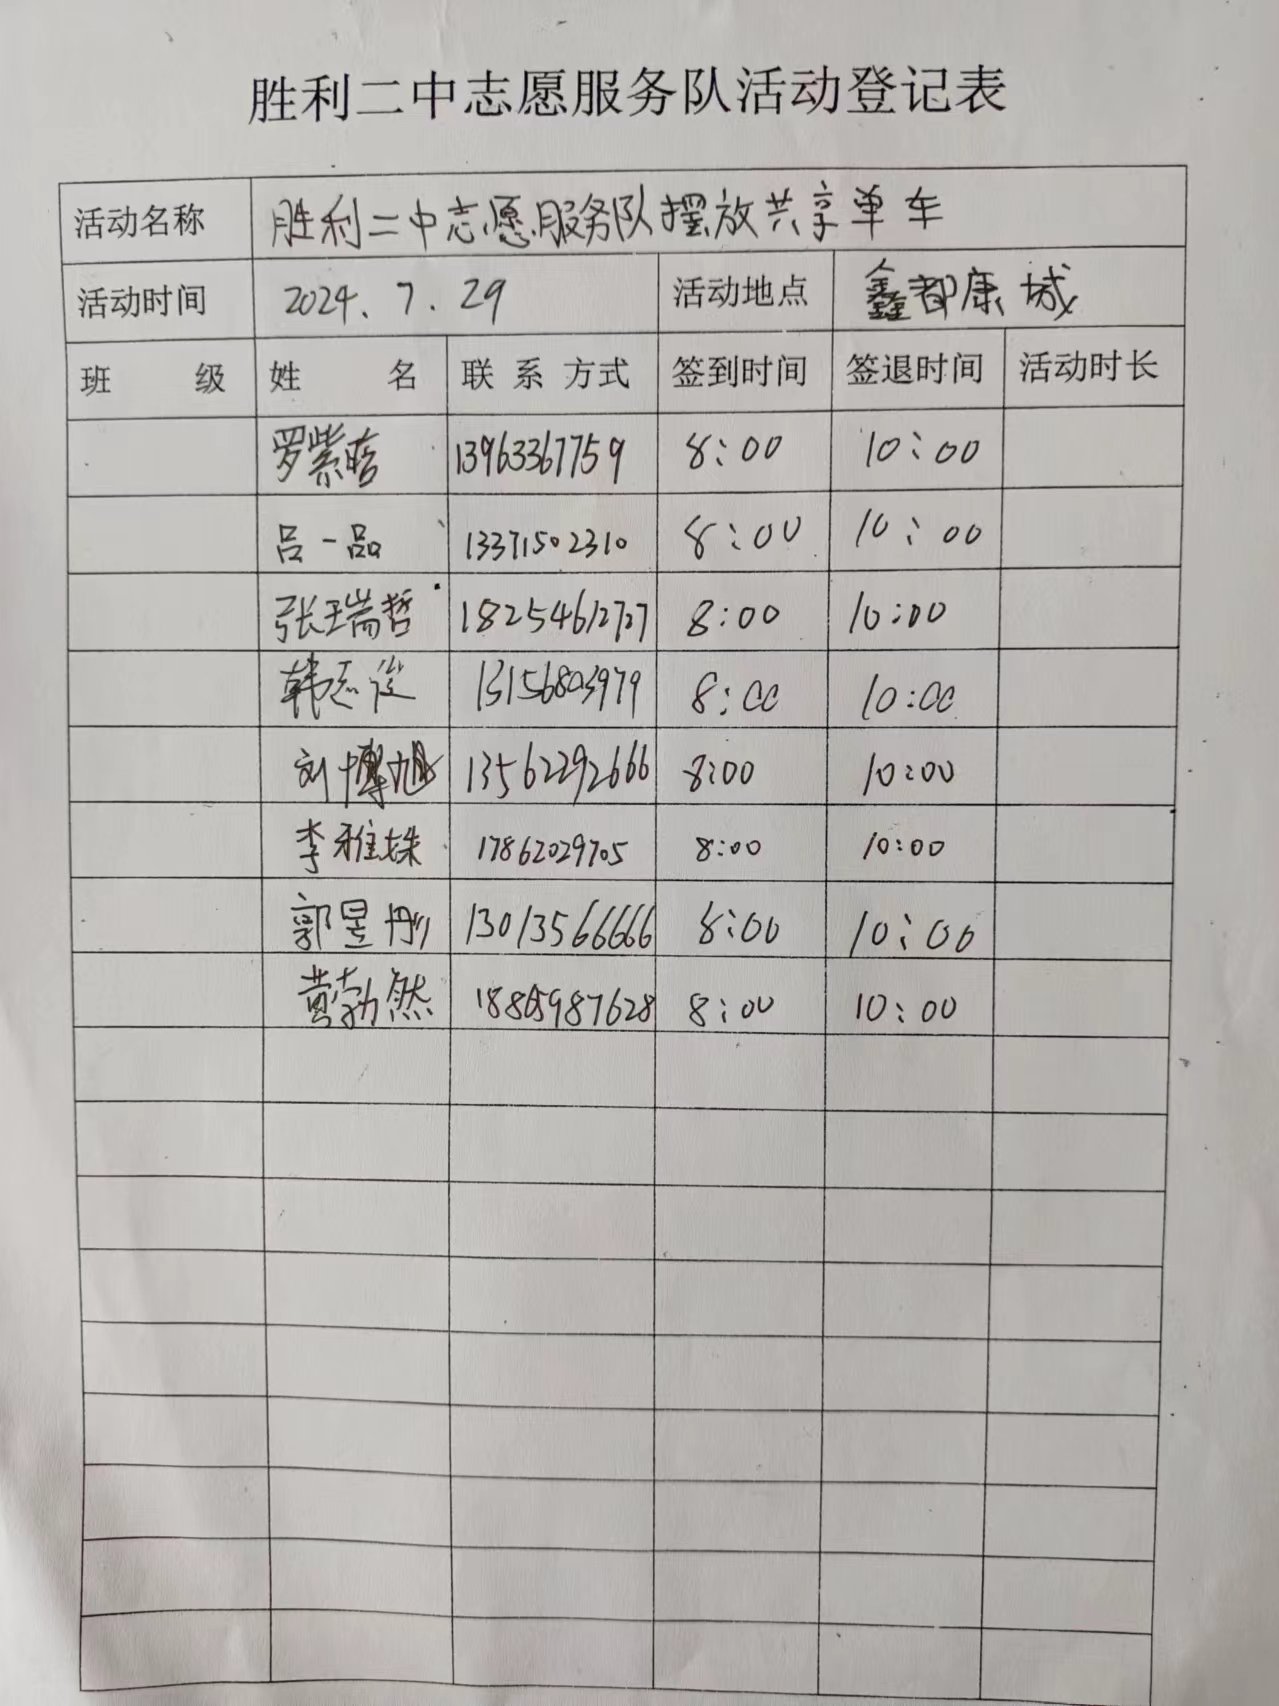 胜利二中志愿服务队活动登记表
活动名称 胜利二中志愿服务队摆放共享单车
活动时间 2024.7.29 活动地点 鑫都康城
班 级 姓 名 联系方式 签到时间 签退时间 活动时长
罗紫 13963367759 8:00 10:00
吕一品 13371502310 8:00 10:00
张瑞哲 18254612727 8:00 10:00
韩志俊 13156803979 8:00 10:00
刘博旭 13562292666 8:00 10:00
李雅姝 17862029705 8:00 10:00
郭昱彤 13013566666 8:00 10:00
黄勃然 8:00 10:00